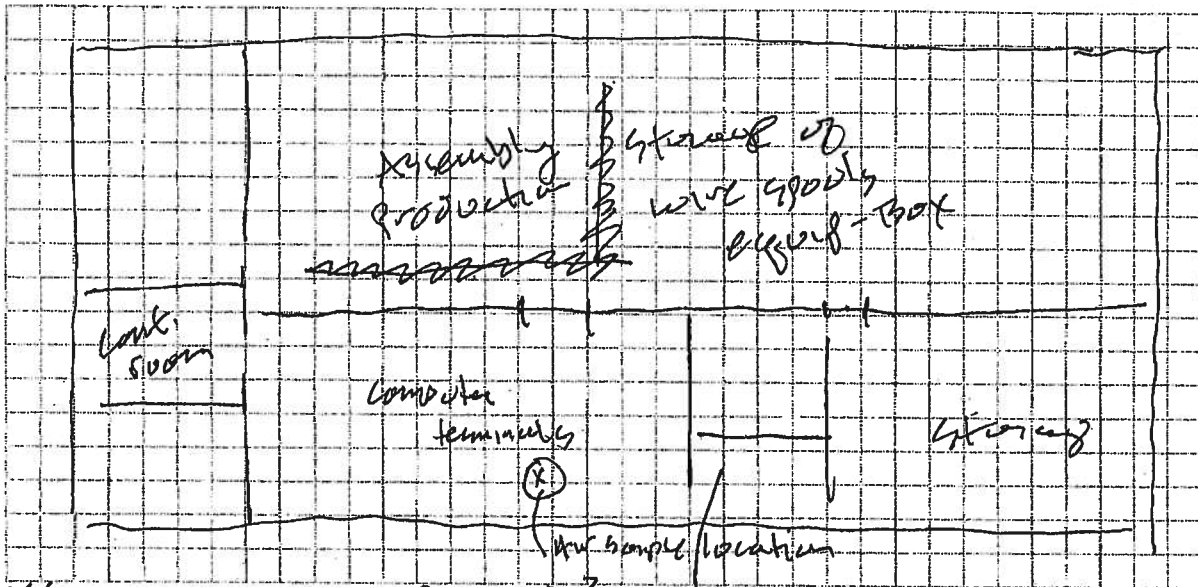 Assembling
production
Storage of
wire spools
equip - Box
Conf.
room
Computer
terminals
Storage
X
Air sample location